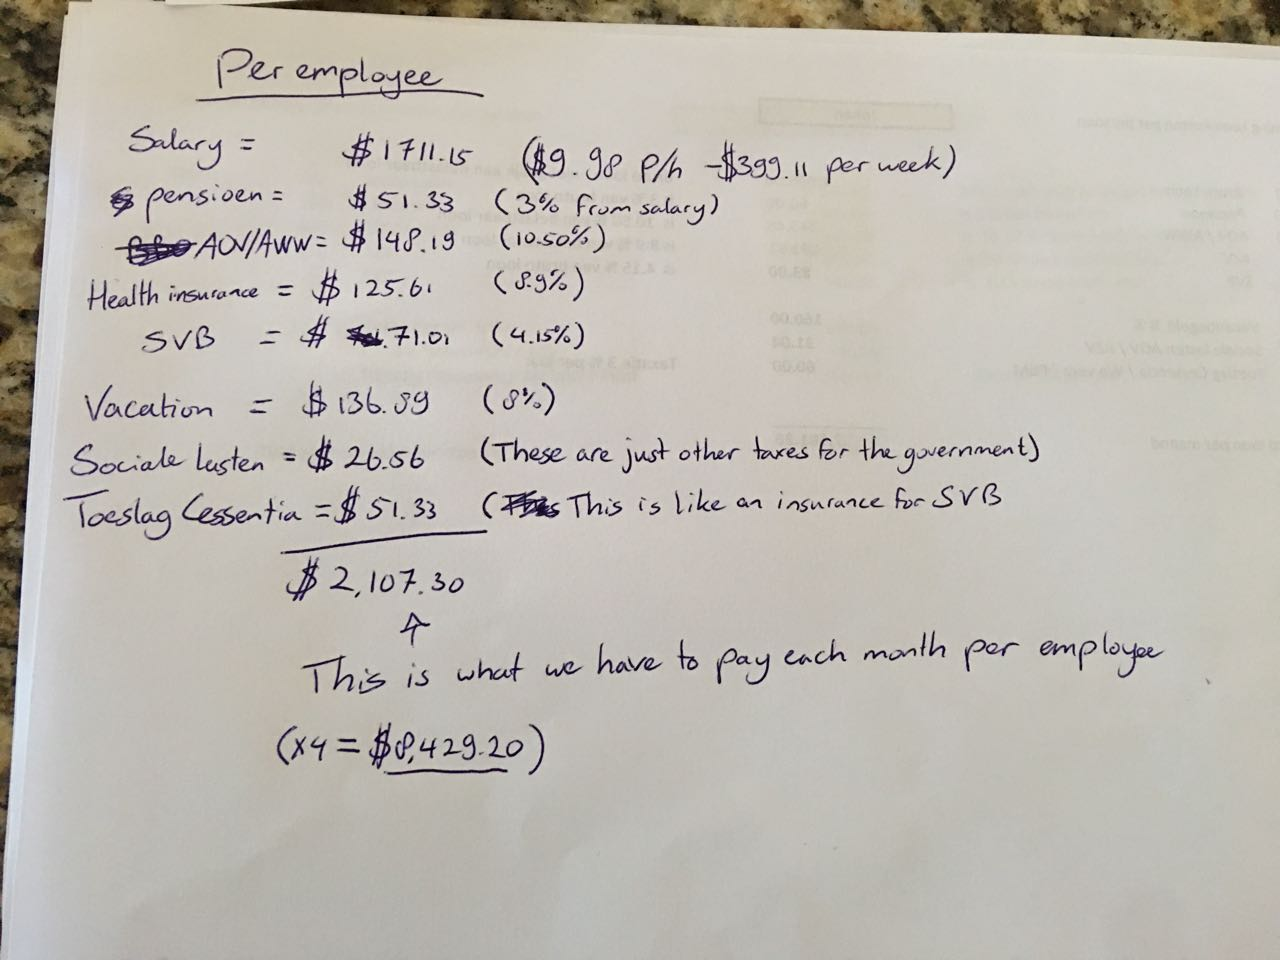 Per employee
Salary = $1711.15 ($9.98 p/h - $399.11 per week)
pensioen = $51.33 (3% from salary)
AOV/AWW = $148.19 (10.50%)
Health insurance = $125.61 (8.9%)
SVB = $71.01 (4.15%)
Vacation = $136.89 (8%)
Sociale lasten = $26.56 (These are just other taxes for the government)
Toeslag Cessentia = $51.33 (This is like an insurance for SVB
$2,107.30
This is what we have to pay each month per employee
(x4 = $8,429.20)